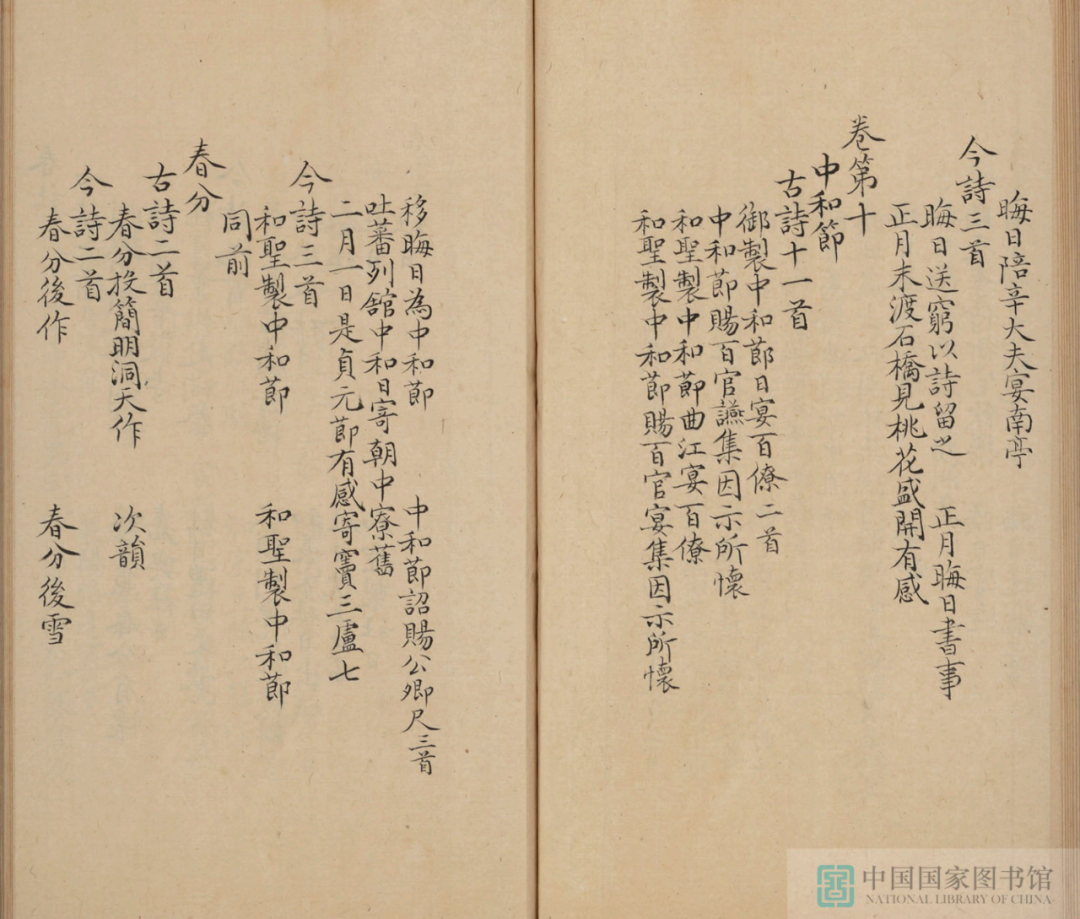 晦日陪辛大夫宴南亭
今詩三首
晦日送窮以詩留之　正月晦日書事
正月末渡石橋見桃花盛開有感
卷第十
中和節
古詩十一首
御製中和節日宴百僚二首
中和節賜百官讌集因示所懷
和聖製中和節曲江宴百僚
和聖製中和節賜百官宴集因示所懷
移晦日為中和節　中和節詔賜公卿尺三首
吐蕃列舘中和日寄朝中寮舊
二月一日是貞元節有感寄竇三盧七
今詩三首
和聖製中和節　和聖製中和節
同前
春分
古詩二首
春分投簡明洞天作　次韻
今詩二首
春分後作　春分後雪
中国国家图书馆
NATIONAL LIBRARY OF CHINA